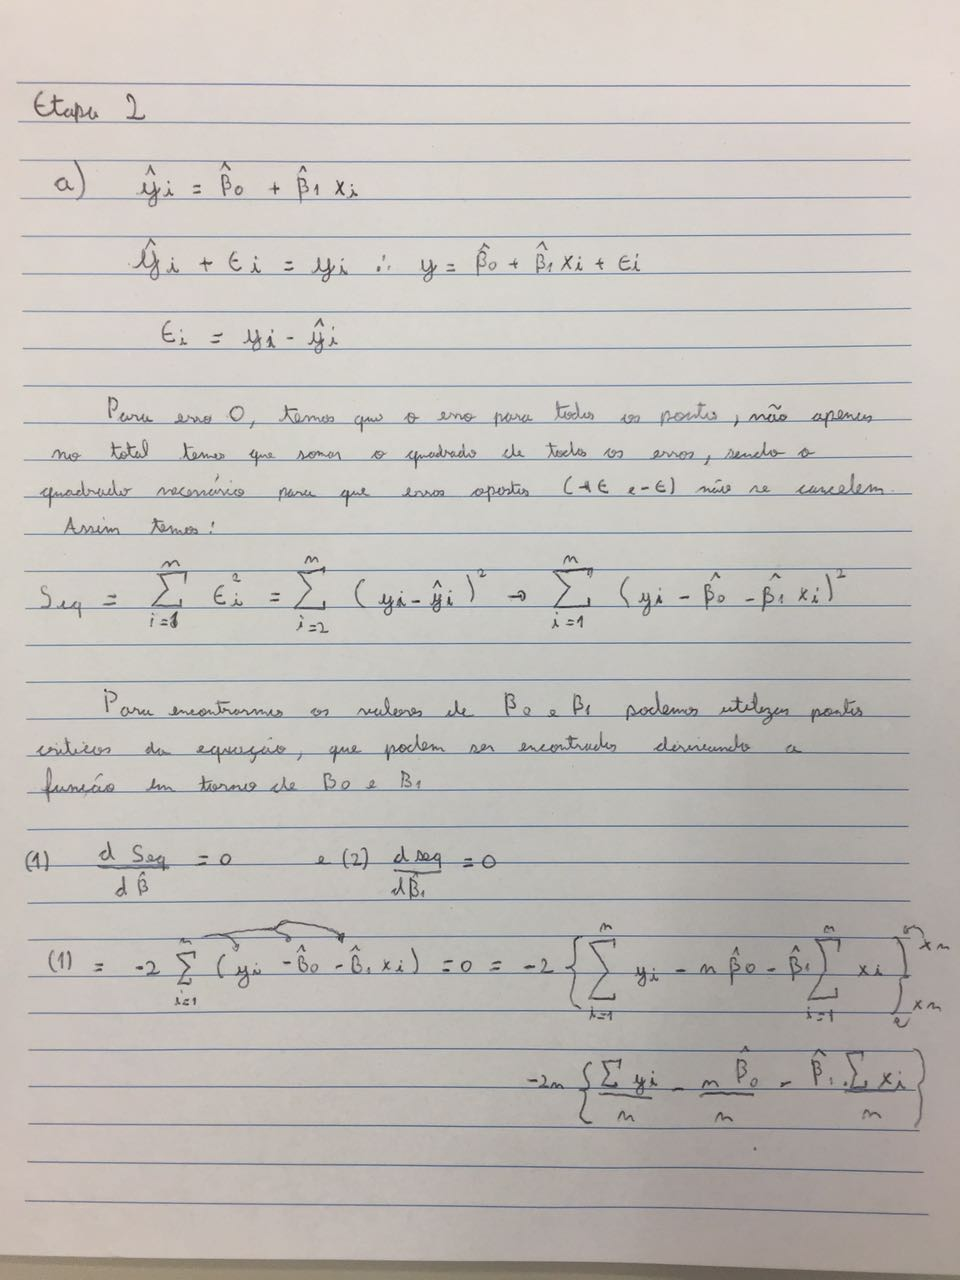 Etapa 2
a) ŷi = β̂0 + β̂1 xi
ŷi + ϵi = yi ∴ y = β̂0 + β̂1 xi + ϵi
ϵi = yi - ŷi
Para erro 0, temos que o erro para todos os pontos, não apenas
no total temos que somar o quadrado de todos os erros, sendo o
quadrado necessário para que erros opostos (+ϵ e -ϵ) não se cancelem.
Assim temos:
Seq = ∑_{i=1}^{n} ϵi² = ∑_{i=2}^{n} (yi - ŷi)² → ∑_{i=1}^{n} (yi - β̂0 - β̂1 xi)²
Para encontrarmos os valores de β0 e β1 podemos utilizar pontos
críticos da equação, que podem ser encontrados derivando a
função em torno de B0 e B1
(1) d Seq / d β̂ = 0 e (2) d seq / d β̂1 = 0
(1) = -2 ∑_{i=1}^{n} (yi - β̂0 - β̂1 xi) = 0 = -2 { ∑_{i=1}^{n} yi - n β̂0 - β̂1 ∑_{i=1}^{n} xi } xn
xn
-2n { ∑ yi / n - n β̂0 / n - β̂1 . ∑ xi / n }